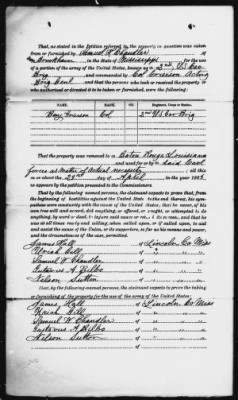 That, as stated in the petition referred to, the property in question was taken
from or furnished by Samuel W Chandler of
Brookhaven, in the State of Mississippi for the use
of a portion of the army of the United States, known as 2nd US Cav
Brig and commanded by Col Everson Acting
Brig Genl and that the persons who took or received the property or
who authorized or directed it to be taken or furnished, were the following:
NAME. RANK. Regiment, Corps or Station.
Col 2nd US Cav Brig
That the property was removed to Baton Rouge Louisiana
and used for or by said
forces as matter of actual necessity all this
on or about the day of April in the year 186
as appears by the petition presented to the Commissioners.
That by the following-named persons, the claimant expects to prove that, from the
beginning of hostilities against the United States to the end thereof, his sympathies
were constantly with the cause of the United States; that he never, of his
own free will and accord, did anything, or offered, or sought, or attempted to do
anything by word or deed, to injure said cause or retard its success, and that he was
at all times ready and willing, when called upon, or if called upon, to aid
and assist the cause of the Union, or its supporters, so far as his means and power,
and the circumstances of the case, permitted.
James Hall of Lincoln Co Miss
of " " "
Samuel W Chandler of " " "
Gustavus A Bilbo of " " "
Nelson Sutton of " " "
That, by the following-named persons, the claimant expects to prove the taking
or furnishing of the property for the use of the army of the United States:
James Hall of Lincoln Co Miss
of " " "
Samuel W Chandler of " " "
Gustavus A Bilbo of " " "
Nelson Sutton of " " "